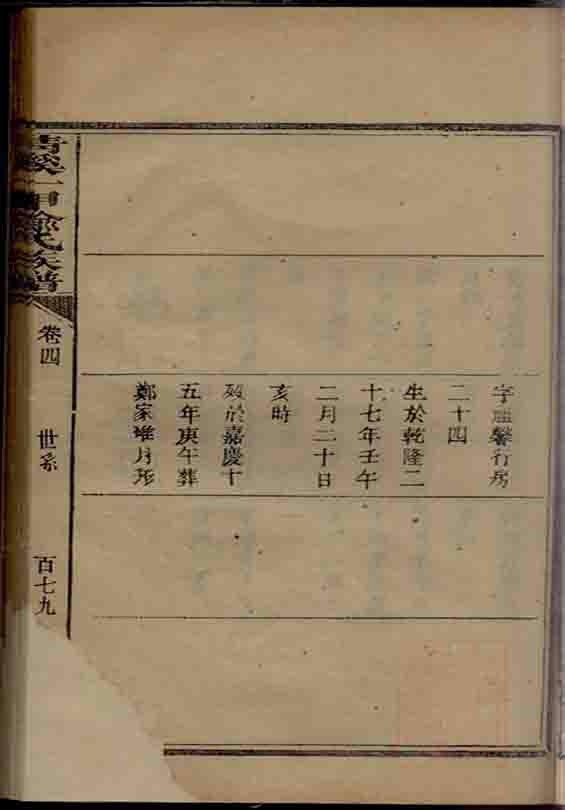 字 馨行房
二十四
生於乾隆二
十七年壬午
二月二十日
亥時
歿於嘉慶十
五年庚午葬
鄭家堆月形
清溪一甲徐氏族譜
卷四
世系
百七九